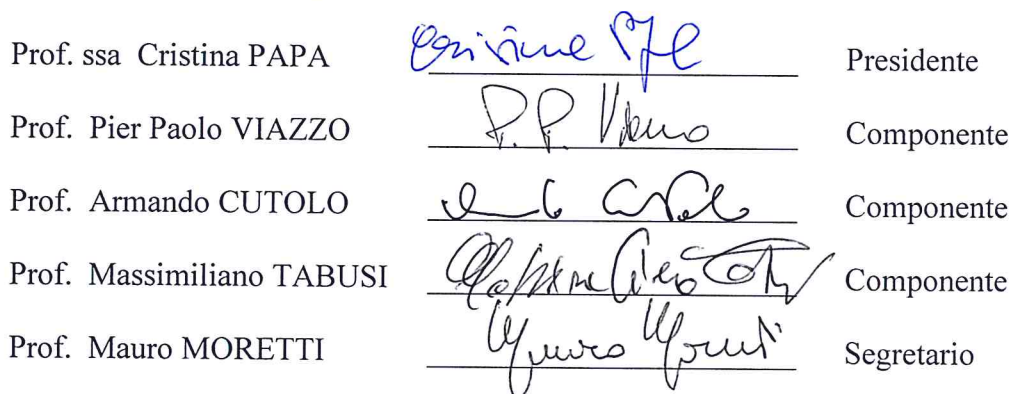 Prof. ssa Cristina PAPA Presidente
Prof. Pier Paolo VIAZZO P. P. Viazzo Componente
Prof. Armando CUTOLO Componente
Prof. Massimiliano TABUSI Componente
Prof. Mauro MORETTI Mauro Moretti Segretario